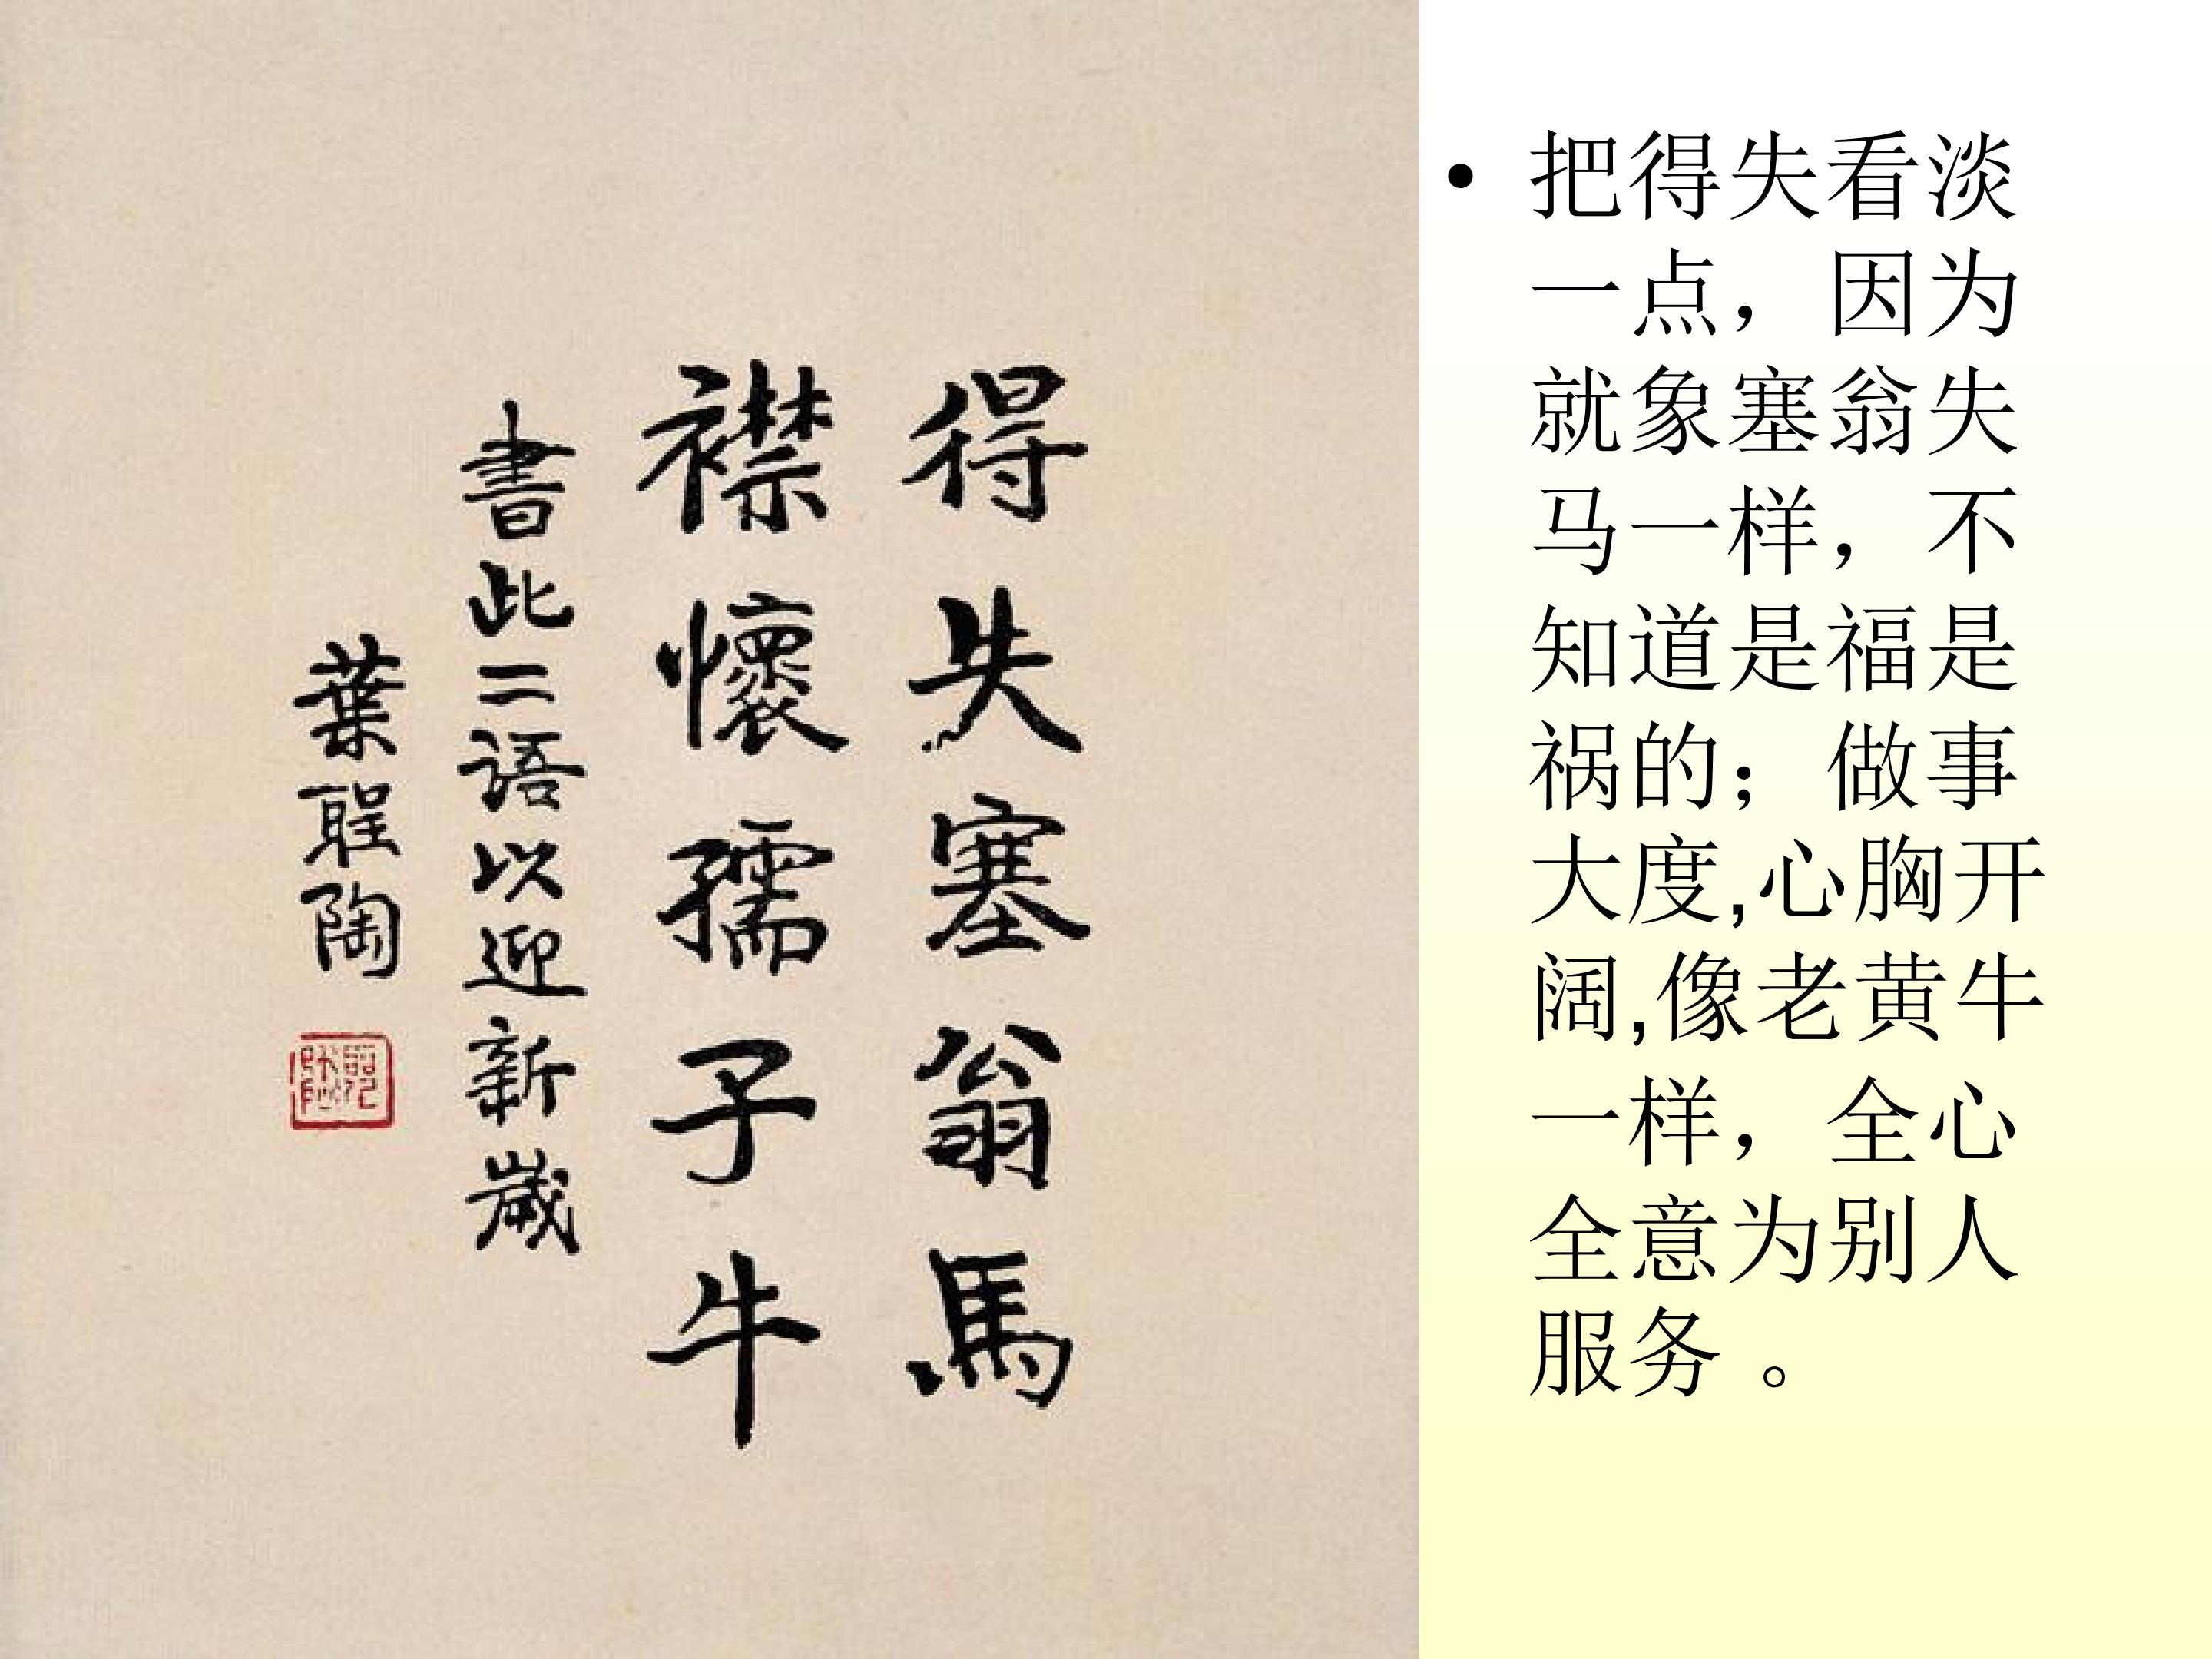 得失塞翁馬
襟懷孺子牛
書此二語以迎新歲
葉聖陶
• 把得失看淡
一点，因为
就象塞翁失
马一样，不
知道是福是
祸的；做事
大度,心胸开
阔,像老黄牛
一样，全心
全意为别人
服务 。